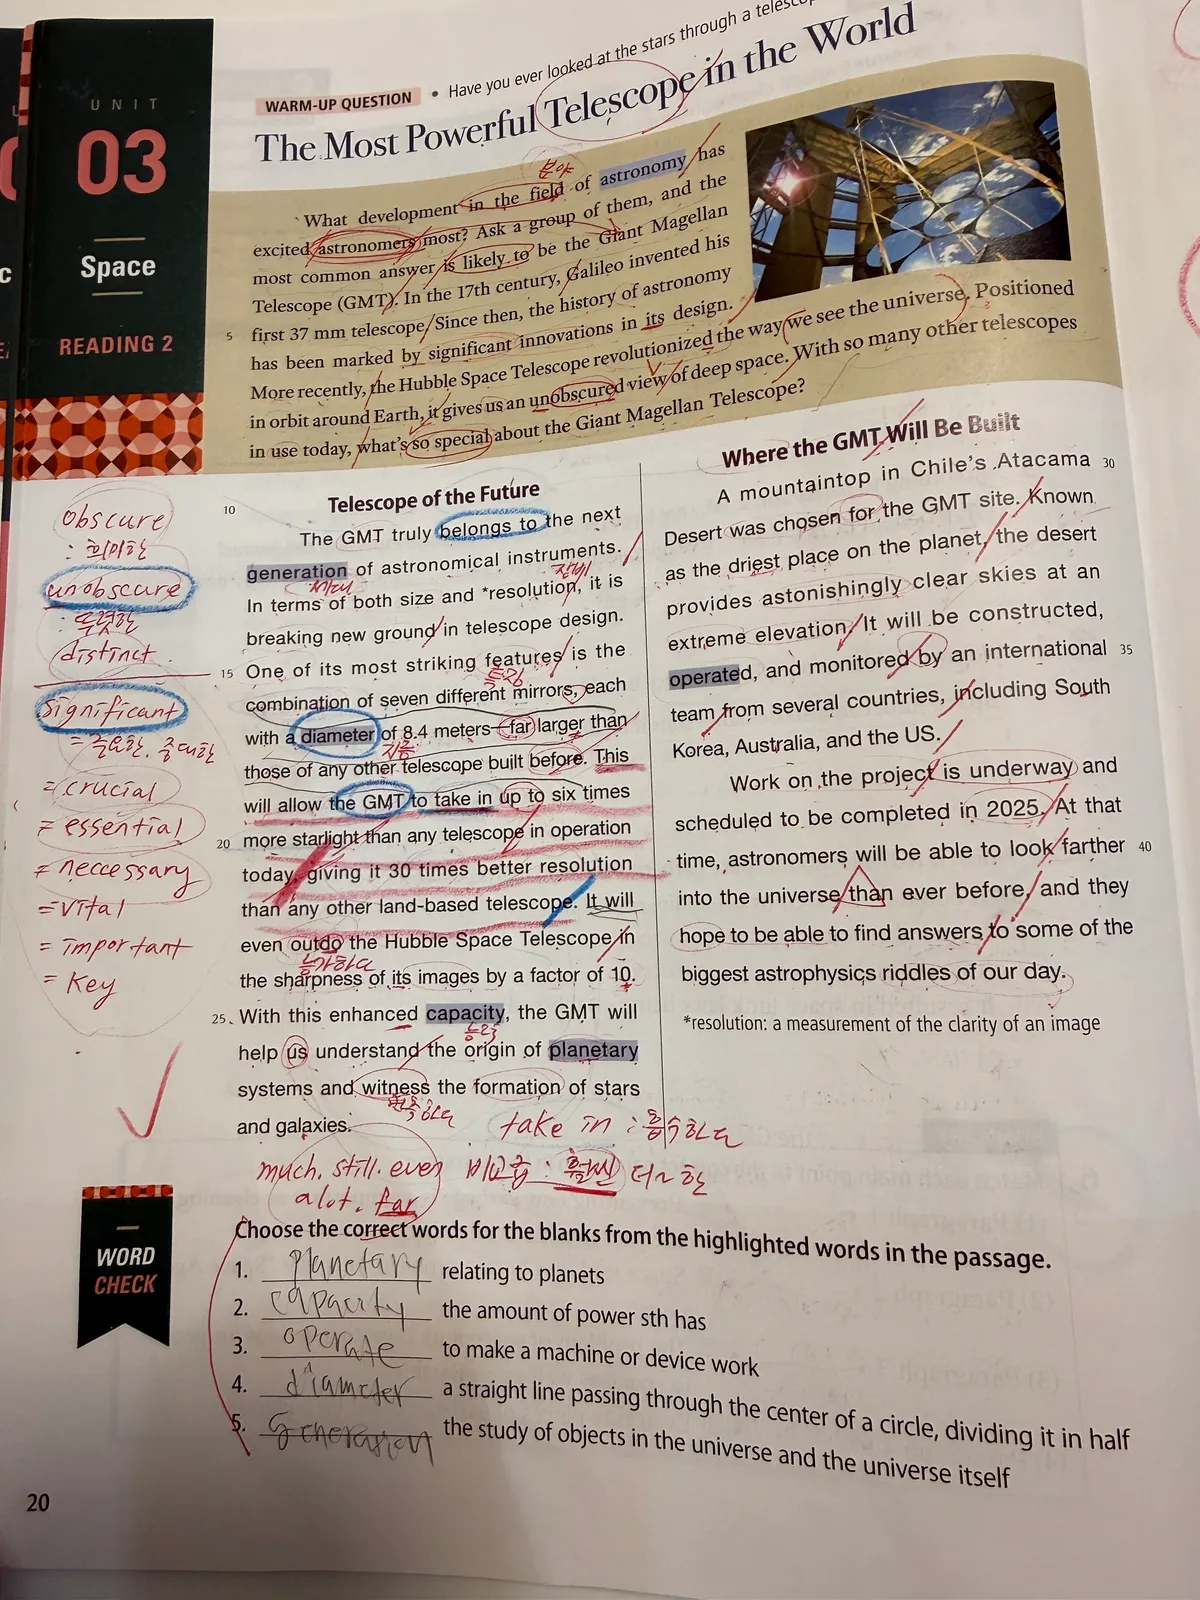 UNIT
03
Space
READING 2
WARM-UP QUESTION • Have you ever looked at the stars through a
The Most Powerful Telescope in the World
분야
What development in the field of astronomy has
excited astronomers most? Ask a group of them, and the
most common answer is likely to be the Giant Magellan
Telescope (GMT). In the 17th century, Galileo invented his
5 first 37 mm telescope. Since then, the history of astronomy
has been marked by significant innovations in its design.
More recently, the Hubble Space Telescope revolutionized the way we see the universe. Positioned
in orbit around Earth, it gives us an unobscured view of deep space. With so many other telescopes
in use today, what's so special about the Giant Magellan Telescope?
obscure
: 희미한
unobscure
: 뚜렷한
distinct
significant
= 중요한, 중대한
= crucial
= essential
= neccessary
= vital
= important
= key
10 Telescope of the Future
The GMT truly belongs to the next
generation of astronomical instruments.
세대
장비
In terms of both size and *resolution, it is
breaking new ground in telescope design.
15 One of its most striking features is the
특징
combination of seven different mirrors, each
with a diameter of 8.4 meters—far larger than
지름
those of any other telescope built before. This
will allow the GMT to take in up to six times
20 more starlight than any telescope in operation
today, giving it 30 times better resolution
than any other land-based telescope. It will
even outdo the Hubble Space Telescope in
능가하다
the sharpness of its images by a factor of 10.
25 With this enhanced capacity, the GMT will
능력
help us understand the origin of planetary
systems and witness the formation of stars
목격하다
and galaxies.
take in : 흡수하다
much. still. even
a lot. far
비교급 : 훨씬 더~한
Where the GMT Will Be Built
A mountaintop in Chile's Atacama 30
Desert was chosen for the GMT site. Known
as the driest place on the planet, the desert
provides astonishingly clear skies at an
extreme elevation. It will be constructed,
operated, and monitored by an international 35
team from several countries, including South
Korea, Australia, and the US.
Work on the project is underway and
scheduled to be completed in 2025. At that
time, astronomers will be able to look farther 40
into the universe than ever before, and they
hope to be able to find answers to some of the
biggest astrophysics riddles of our day.
*resolution: a measurement of the clarity of an image
WORD
CHECK
Choose the correct words for the blanks from the highlighted words in the passage.
1. planetary relating to planets
2. capacity the amount of power sth has
3. operate to make a machine or device work
4. diameter a straight line passing through the center of a circle, dividing it in half
5. Generation the study of objects in the universe and the universe itself
20